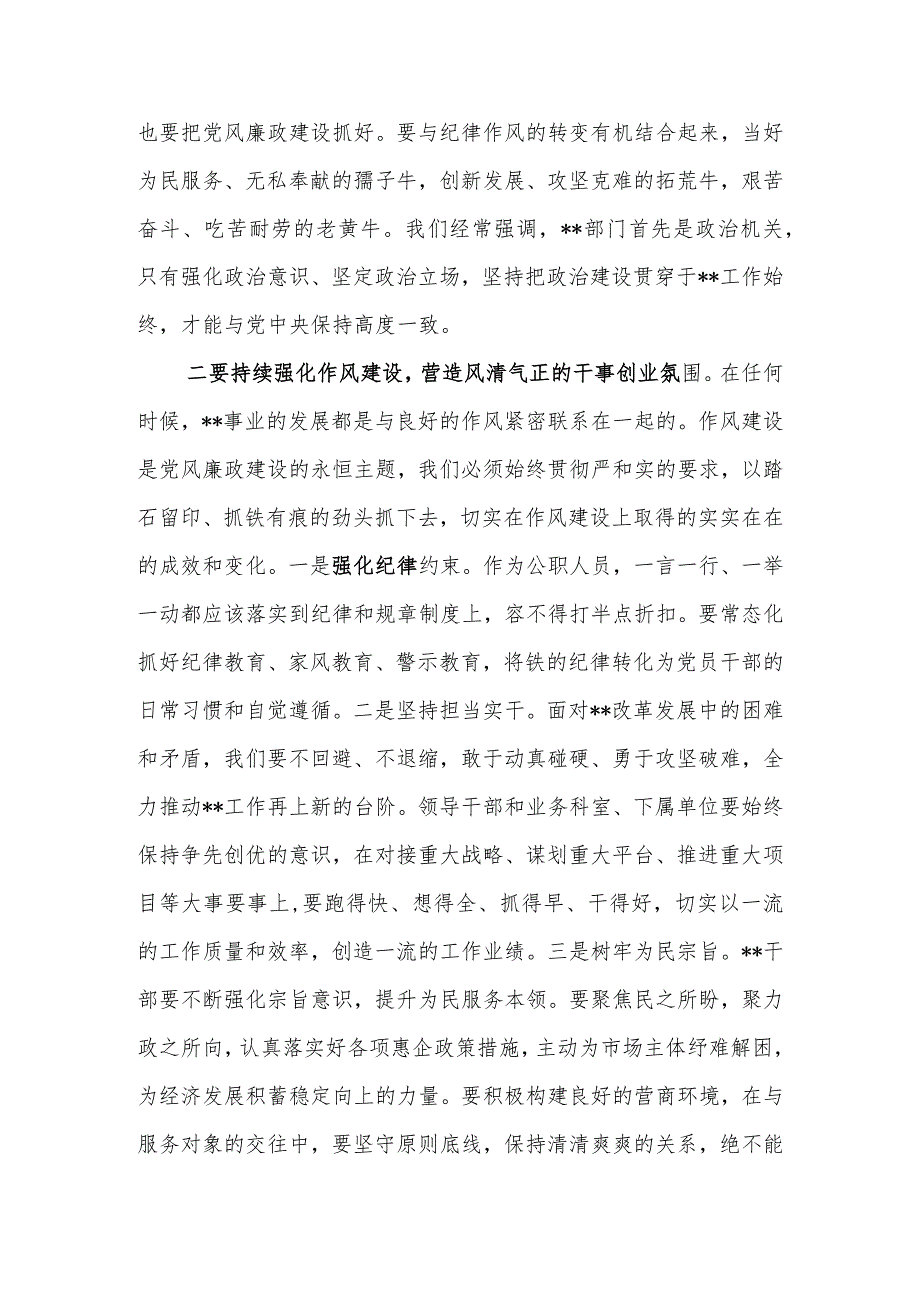 也要把党风廉政建设抓好。要与纪律作风的转变有机结合起来，当好
为民服务、无私奉献的孺子牛，创新发展、攻坚克难的拓荒牛，艰苦
奋斗、吃苦耐劳的老黄牛。我们经常强调，**部门首先是政治机关，
只有强化政治意识、坚定政治立场，坚持把政治建设贯穿于**工作始
终，才能与党中央保持高度一致。
二要持续强化作风建设，营造风清气正的干事创业氛围。在任何
时候，**事业的发展都是与良好的作风紧密联系在一起的。作风建设
是党风廉政建设的永恒主题，我们必须始终贯彻严和实的要求，以踏
石留印、抓铁有痕的劲头抓下去，切实在作风建设上取得的实实在在
的成效和变化。一是强化纪律约束。作为公职人员，一言一行、一举
一动都应该落实到纪律和规章制度上，容不得打半点折扣。要常态化
抓好纪律教育、家风教育、警示教育，将铁的纪律转化为党员干部的
日常习惯和自觉遵循。二是坚持担当实干。面对**改革发展中的困难
和矛盾，我们要不回避、不退缩，敢于动真碰硬、勇于攻坚破难，全
力推动**工作再上新的台阶。领导干部和业务科室、下属单位要始终
保持争先创优的意识，在对接重大战略、谋划重大平台、推进重大项
目等大事要事上,要跑得快、想得全、抓得早、干得好，切实以一流
的工作质量和效率，创造一流的工作业绩。三是树牢为民宗旨。**干
部要不断强化宗旨意识，提升为民服务本领。要聚焦民之所盼，聚力
政之所向，认真落实好各项惠企政策措施，主动为市场主体纾难解困，
为经济发展积蓄稳定向上的力量。要积极构建良好的营商环境，在与
服务对象的交往中，要坚守原则底线，保持清清爽爽的关系，绝不能